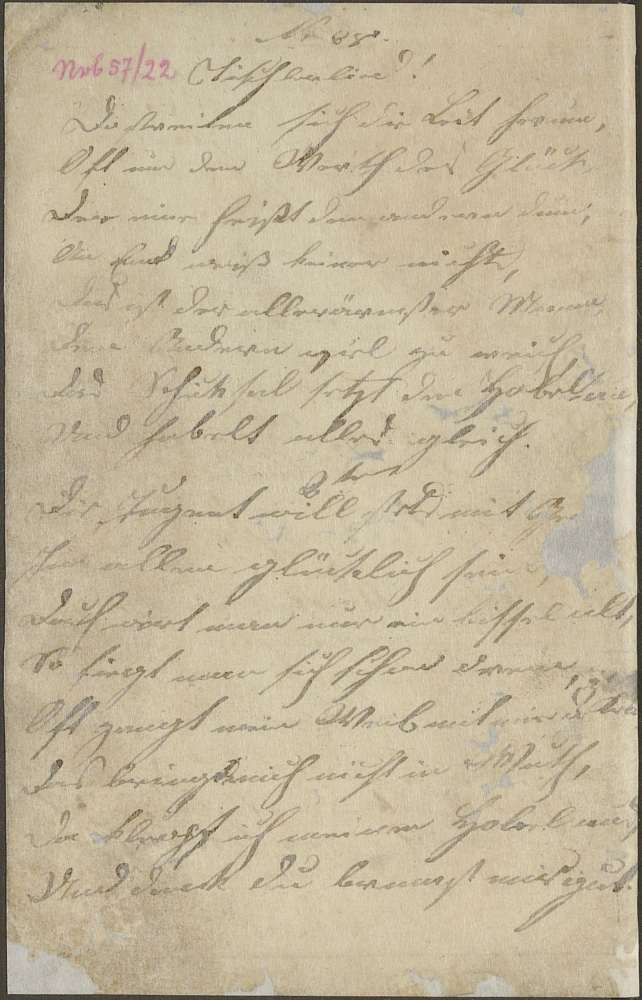 No 88.
Nrb 57/22 Tischlerlied!
Da streiten sich die Leit herum,
Oft um den Werth des Glücks
Der eine heißt den andern dum,
Am End weiß keiner nichts,
Das ist der allerärmster Mann,
Dem Andern viel zu reich
Das Schiksal setzt den Hobel an,
Und hobelt alles gleich.
2ter
Die Jugent will stets mit
In allen glücklich sein,
Doch wirt man nur ein bissel alt,
So fiegt man sich schon drein,
Oft zangt mein Weib mit mir
3ter
Das bringt mich nicht in Wuth,
Da klopf ich meinen Hobel aus
Und denk du brumst mir gut.